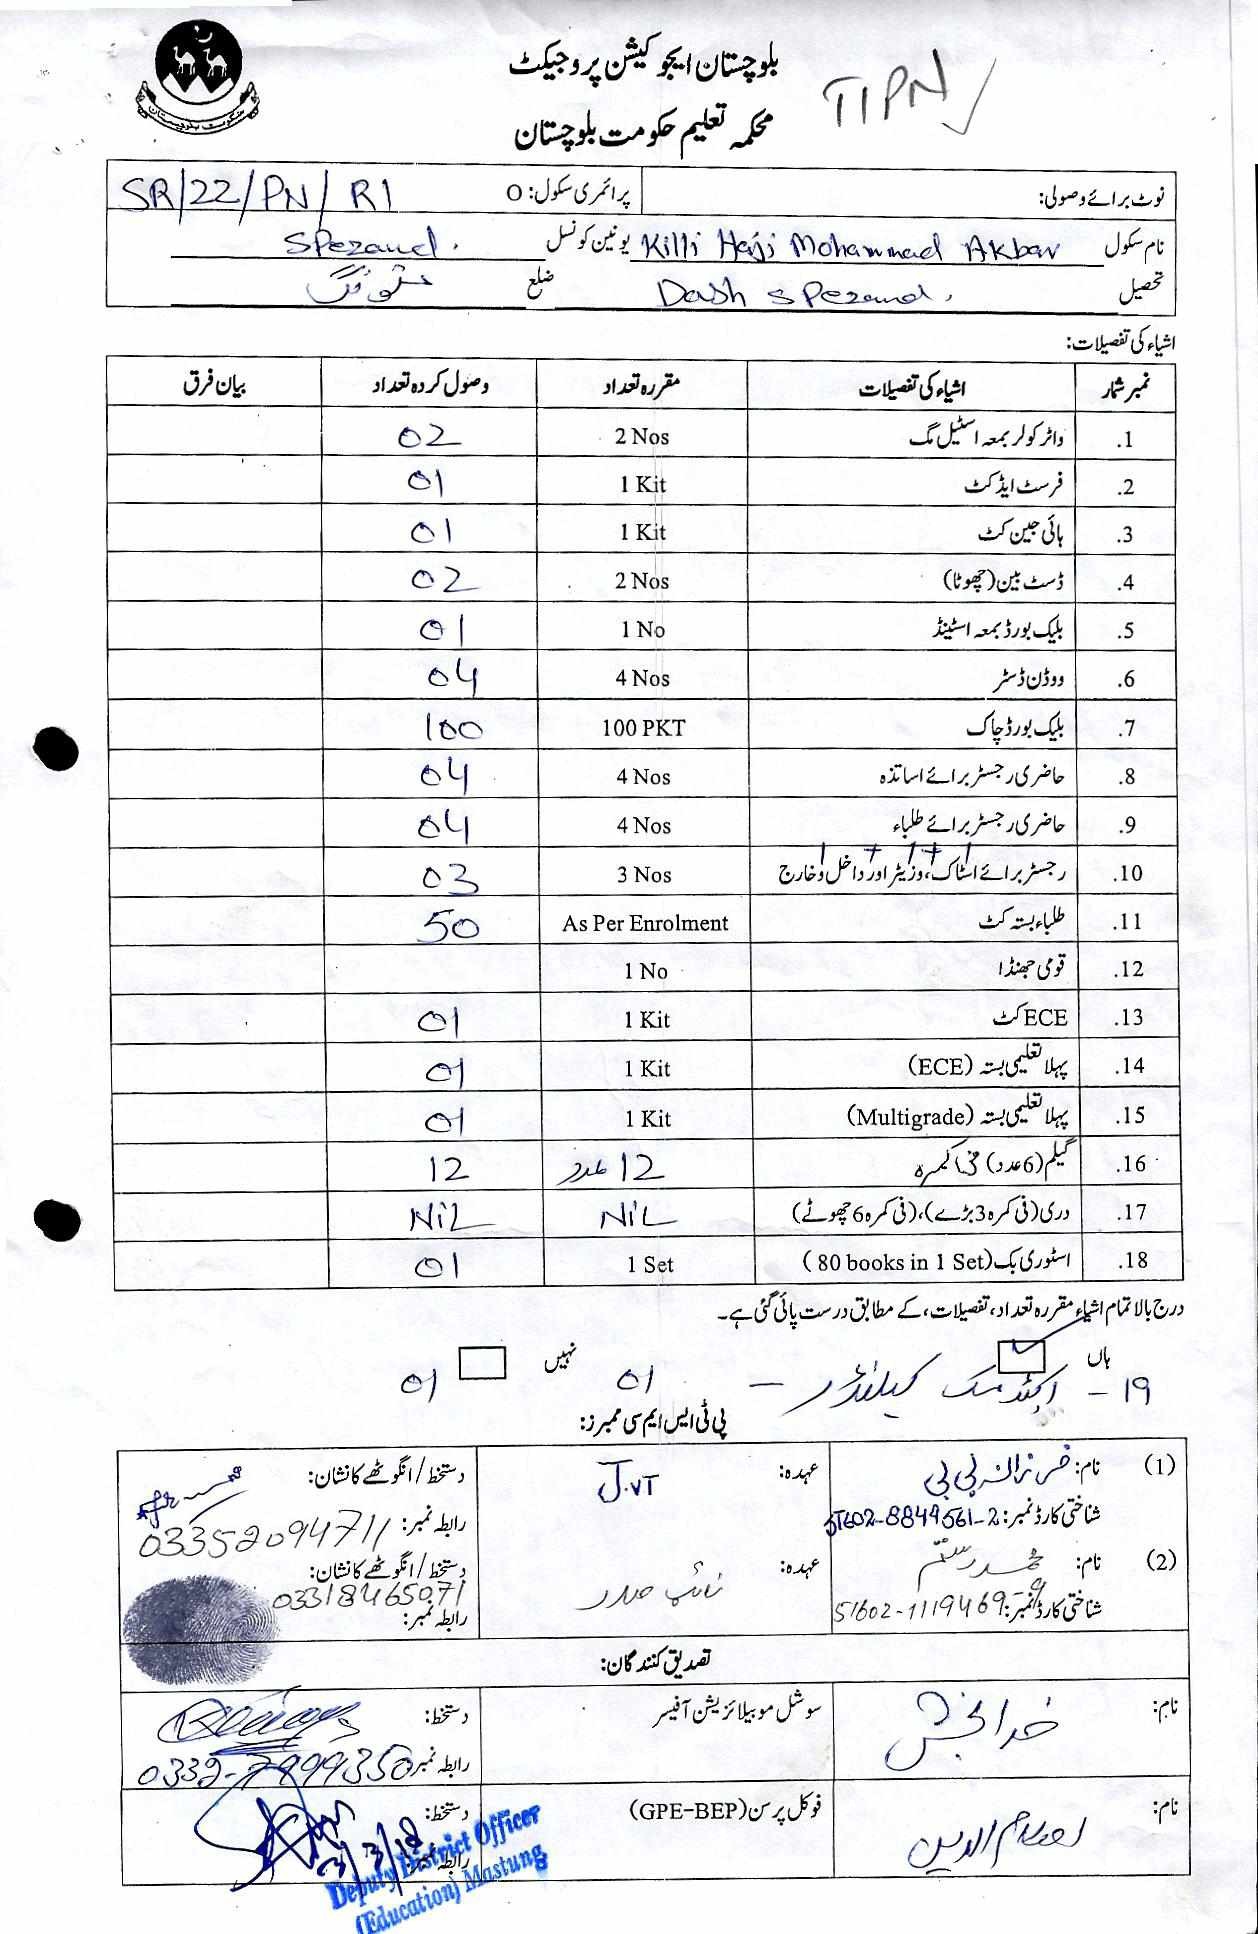 بلوچستان ایجوکیشن پروجیکٹ
TIPN
محکمہ تعلیم حکومت بلوچستان
نوٹ برائے وصولی: پرائمری سکول: O SR/22/PN/R1
نام سکول Killi Haji Mohammad Akbar یونین کونسل Spezand.
تحصیل Dash Spezand. ضلع مستونگ
اشیاء کی تفصیلات:
نمبر شمار اشیاء کی تفصیلات مقررہ تعداد وصول کردہ تعداد بیان فرق
1. واٹر کولر بمعہ اسٹیل مگ 2 Nos 02
2. فرسٹ ایڈ کٹ 1 Kit 01
3. ہائی جین کٹ 1 Kit 01
4. ڈسٹ بین (چھوٹا) 2 Nos 02
5. بلیک بورڈ بمعہ اسٹینڈ 1 No 01
6. ووڈن ڈسٹر 4 Nos 04
7. بلیک بورڈ چاک 100 PKT 100
8. حاضری رجسٹر برائے اساتذہ 4 Nos 04
9. حاضری رجسٹر برائے طلباء 4 Nos 04
10. رجسٹر برائے اسٹاک، وزیٹر اور داخل و خارج 3 Nos 03
11. طلباء بستہ کٹ As Per Enrolment 50
12. قومی جھنڈا 1 No
13. ECE کٹ 1 Kit 01
14. پہلا تعلیمی بستہ (ECE) 1 Kit 01
15. پہلا تعلیمی بستہ (Multigrade) 1 Kit 01
16. گیلم (6 عدد) فی کمرہ 12 عدد 12
17. دری (فی کمرہ 3 بڑے)، (فی کمرہ 6 چھوٹے) NiL NiL
18. اسٹوری بک (80 books in 1 Set) 1 Set 01
درج بالا تمام اشیاء مقررہ تعداد، تفصیلات، کے مطابق درست پائی گئی ہے۔
ہاں نہیں
19 - اکیڈمک کیلنڈر - 01 01
پی ٹی ایس ایم سی ممبرز:
(1) نام: فرزانہ بی بی عہدہ: J.VT دستخط/انگوٹھے کا نشان:
شناختی کارڈ نمبر: 51602-8849561-2 رابطہ نمبر: 03352094711
(2) نام: محمد رستم عہدہ: نائب صدر دستخط/انگوٹھے کا نشان:
شناختی کارڈ نمبر: 51602-1119469-9 رابطہ نمبر: 03318465071
تصدیق کنندگان:
نام: خدا بخش سوشل موبیلائزیشن آفیسر دستخط:
رابطہ نمبر 0332-7899350
نام: فوکل پرسن (GPE-BEP) دستخط:
رابطہ نمبر:
Deputy District Officer
(Education) Mastung